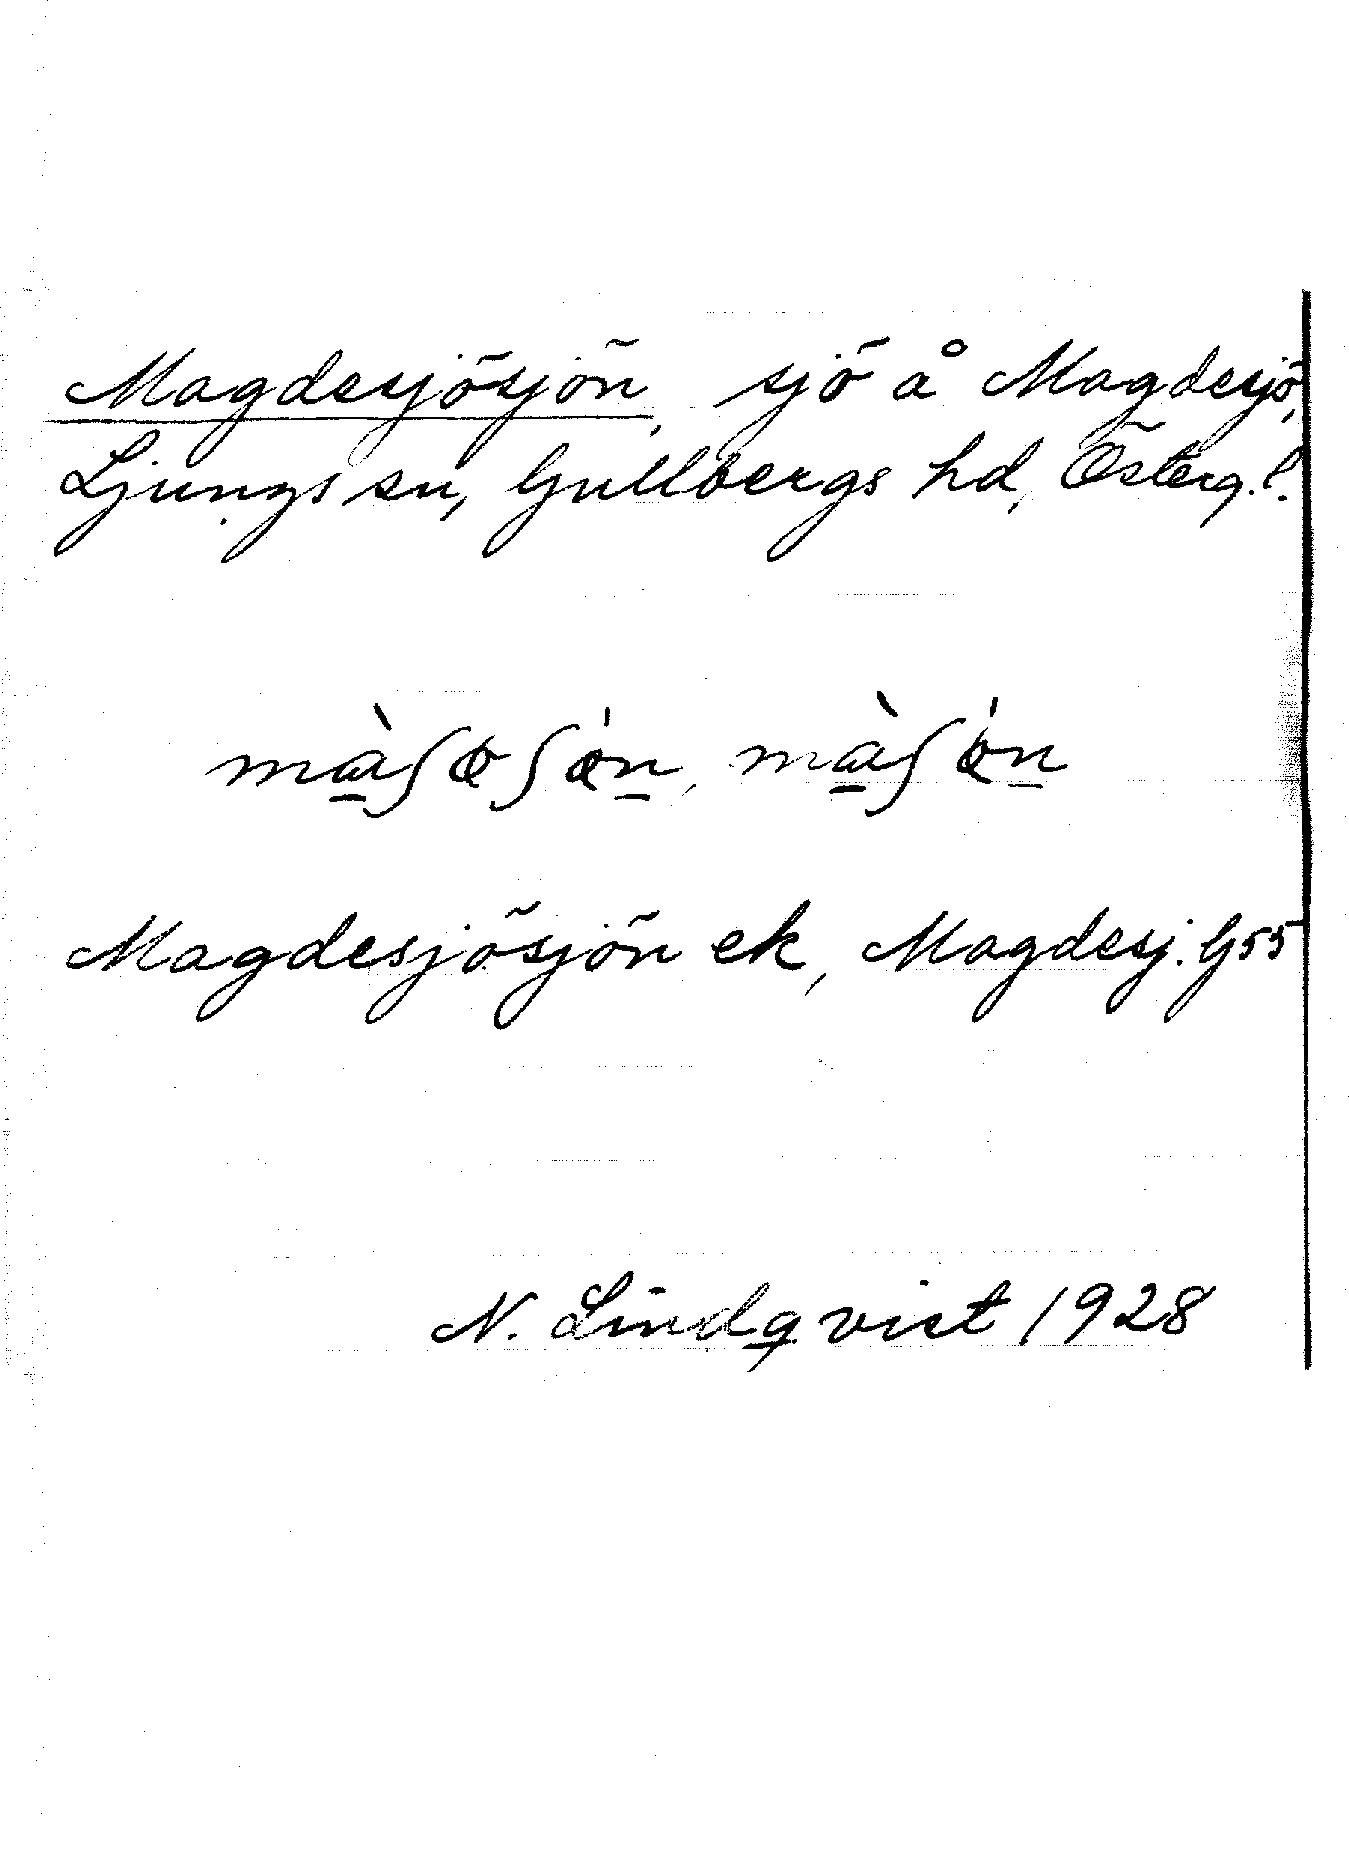 Magdesjösjön, sjö å Magdesjö,
Ljungs sn, Gullbergs hd, Österg.l.
màʃøʃön, màʃön
Magdesjösjön ek, Magdesj. G55
N. Lindqvist 1928